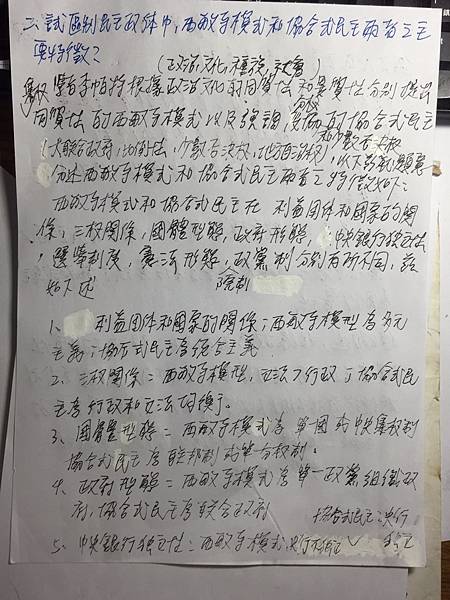 二、試區別民主政体中,西敏寺模式和協合式民主兩者之主
要特徵?
(政治文化,種族,社會)
李帕特根據政治文化的同質性和異質性分別提出
同質性的西敏寺模式以及強調 的協合式民主
(大聯合政府,比例性,少數否決權,地方自治權),以下
分述西敏寺模式和協合式民主兩者之特徵如下:
西敏寺模式和協合式民主在 利益团体和國家的關
係,三权關係,國體型態,政府形態, 中央銀行独立性
,選舉制度,憲法形態,政黨制分別有所不同,茲
如下述
1. 利益团体和國家的關係:西敏寺模型為多元
主義;協合式民主為統合主義
2. 三权關係:西敏寺模型,立法 行政;協合式民
主為行政和立法 
3、國體型態:西敏寺模式為單一國或中央集权制
協合式民主為聯邦制或 分权制。
4、政府型態:西敏寺模式為單一政黨組織政
府,協合式民主為聯合政府
協合式民主:央行
5、中央銀行独立性:西敏寺模式央行不独立